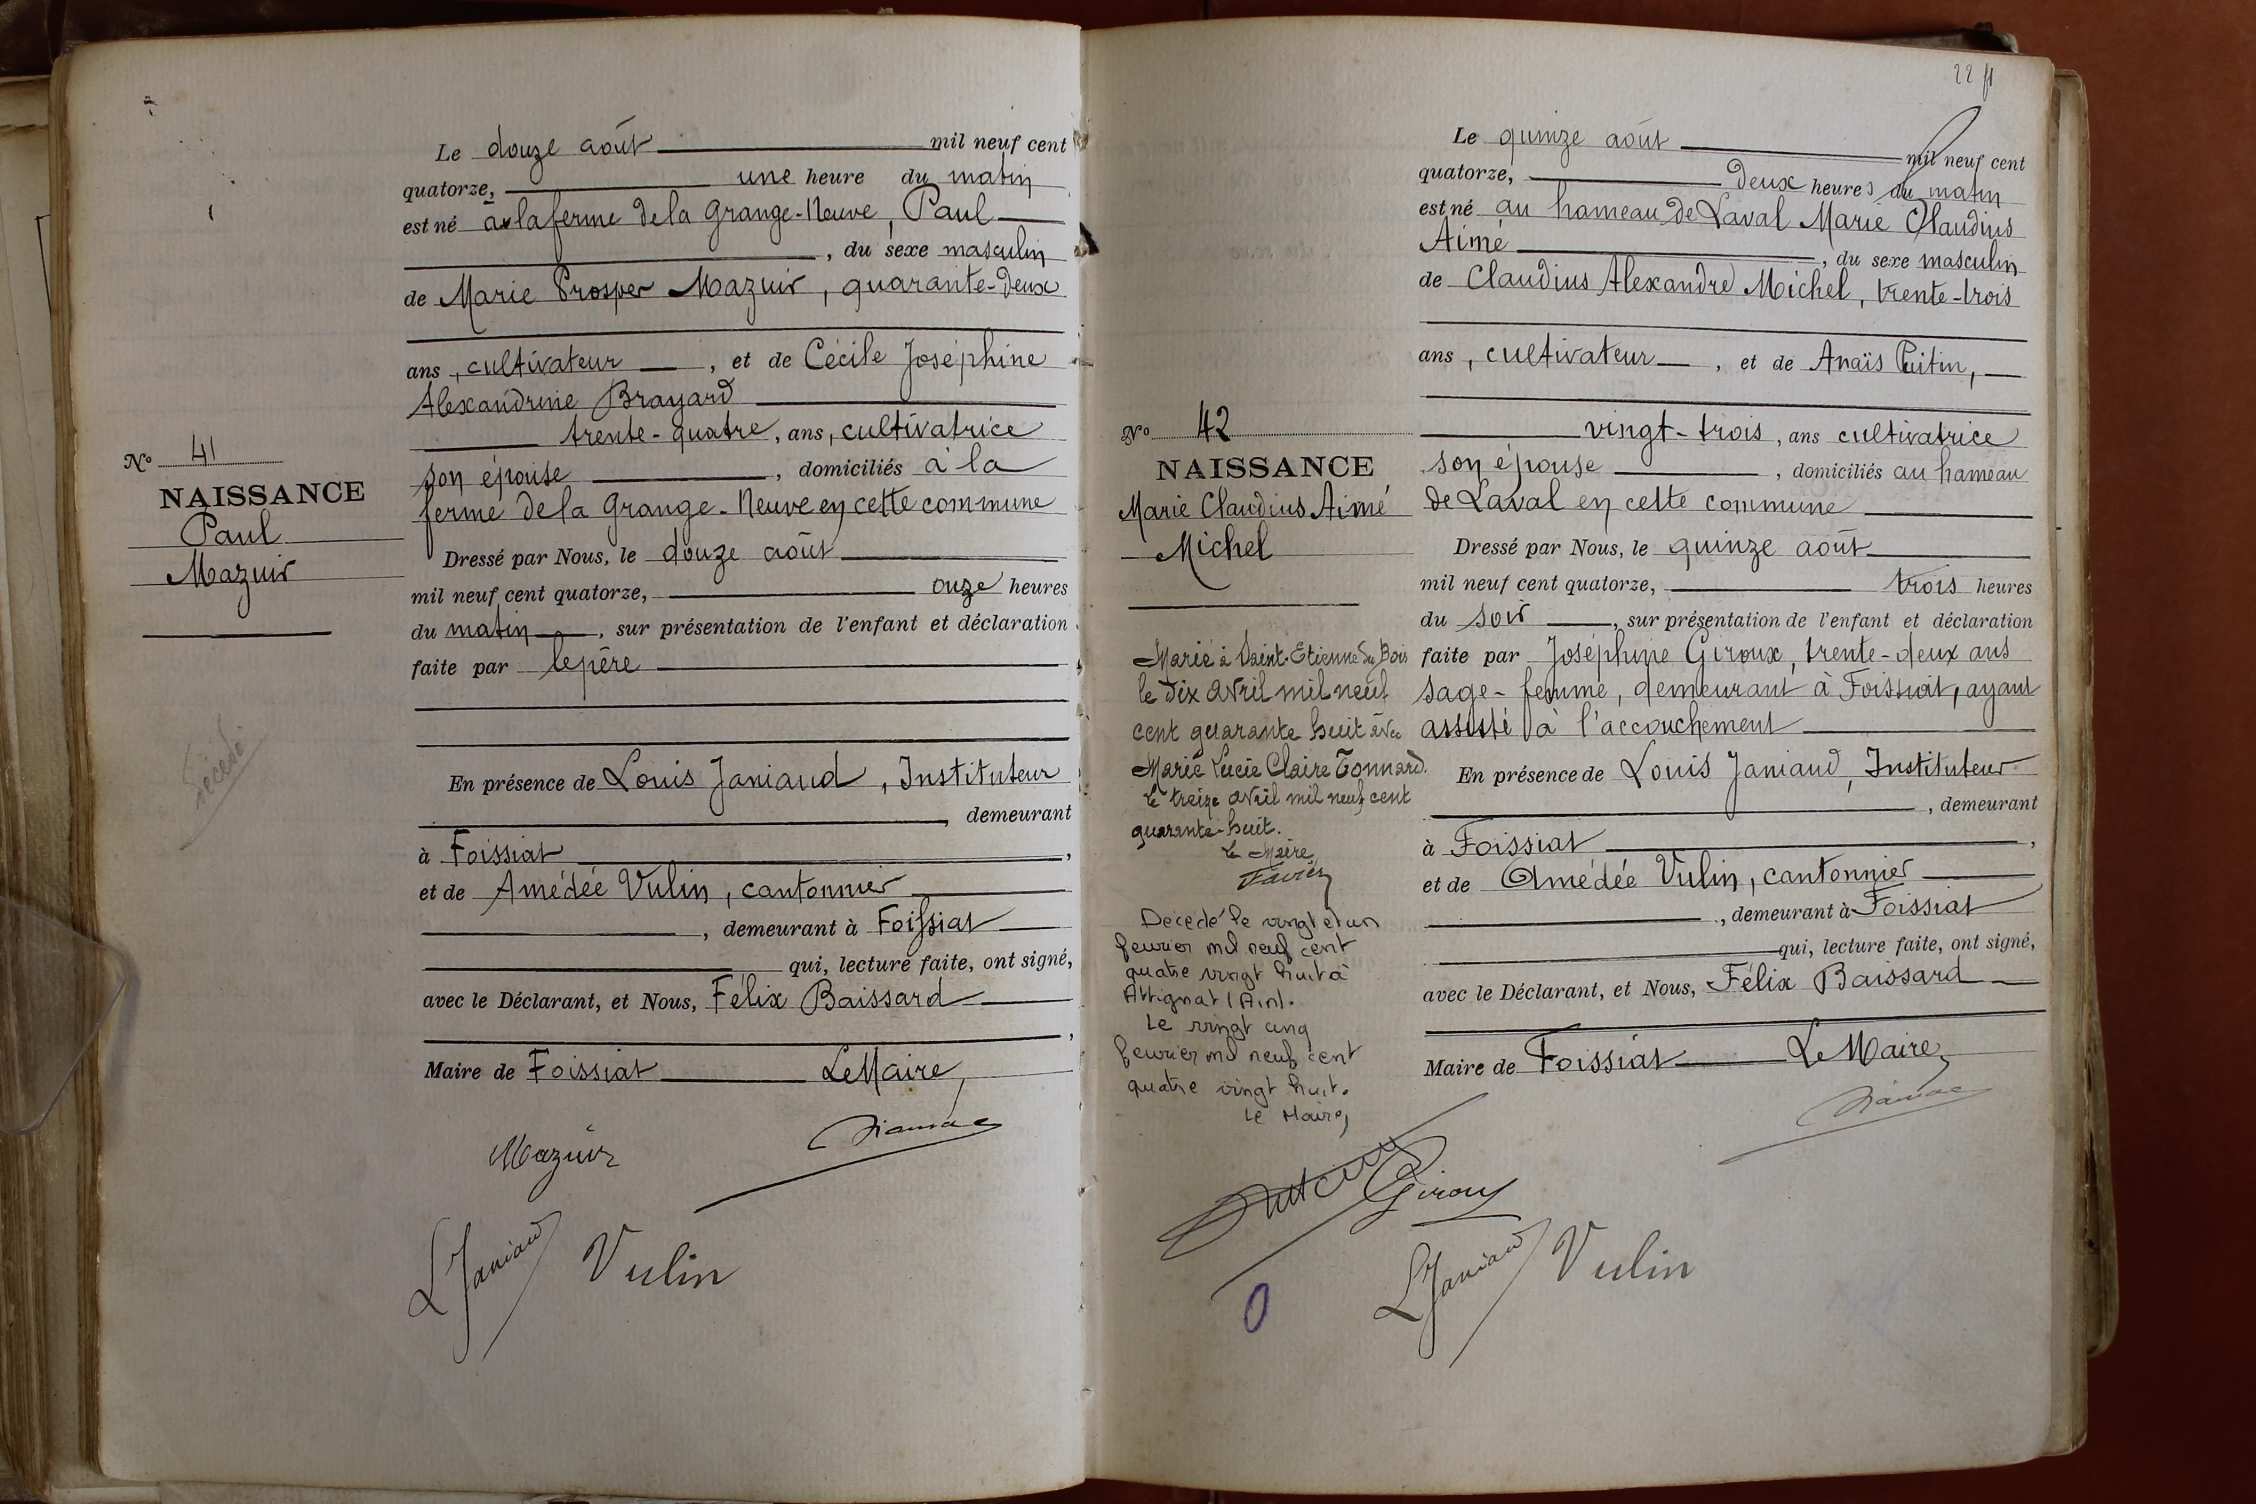 Le douze août mil neuf cent
quatorze, une heure du matin
est né à la ferme de la Grange-Neuve, Paul
, du sexe masculin
de Marie Prosper Mazuir, quarante-deux
ans, cultivateur, et de Cécile Joséphine
Alexandrine Brayard
trente-quatre, ans, cultivatrice
son épouse, domiciliés à la
ferme de la Grange-Neuve en cette commune
Dressé par Nous, le douze août
mil neuf cent quatorze, onze heures
du matin, sur présentation de l'enfant et déclaration
faite par le père
En présence de Louis Janiaud, Instituteur
, demeurant
à Foissiat,
et de Amédée Vulin, cantonnier
, demeurant à Foissiat
qui, lecture faite, ont signé,
avec le Déclarant, et Nous, Félix Baissard
,
Maire de Foissiat Le Maire,
Mazuir
L Janiaud Vulin
No 41
NAISSANCE
Paul
Mazuir
Décédé
22
Le quinze août mil neuf cent
quatorze, deux heures du matin
est né au hameau de Laval Marie Claudius
Aimé, du sexe masculin
de Claudius Alexandre Michel, trente-trois
ans, cultivateur, et de Anaïs Putin,
vingt-trois, ans cultivatrice
son épouse, domiciliés au hameau
de Laval en cette commune
Dressé par Nous, le quinze août
mil neuf cent quatorze, trois heures
du soir, sur présentation de l'enfant et déclaration
faite par Joséphine Giroux, trente-deux ans
sage-femme, demeurant à Foissiat, ayant
assisté à l'accouchement
En présence de Louis Janiaud, Instituteur
, demeurant
à Foissiat,
et de Amédée Vulin, cantonnier
, demeurant à Foissiat
qui, lecture faite, ont signé,
avec le Déclarant, et Nous, Félix Baissard
Maire de Foissiat Le Maire,
Giroux
L Janiaud Vulin
No 42
NAISSANCE
Marie Claudius Aimé
Michel
Marié à Saint-Etienne du Bois
le dix avril mil neuf
cent quarante huit avec
Marie Lucie Claire Tonnard.
le treize avril mil neuf cent
quarante-huit.
Le Maire,
Favier
Décédé le vingt et un
fevrier mil neuf cent
quatre vingt huit à
Attignat (Ain).
Le vingt cinq
fevrier mil neuf cent
quatre vingt huit.
Le Maire,